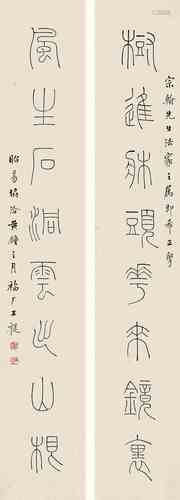 樹進牀頭花來鏡裏
宗翰先生法家之屬即希正擘
風生石洞雲出山根
昭昜協洽黃鐘之月福厂王禔